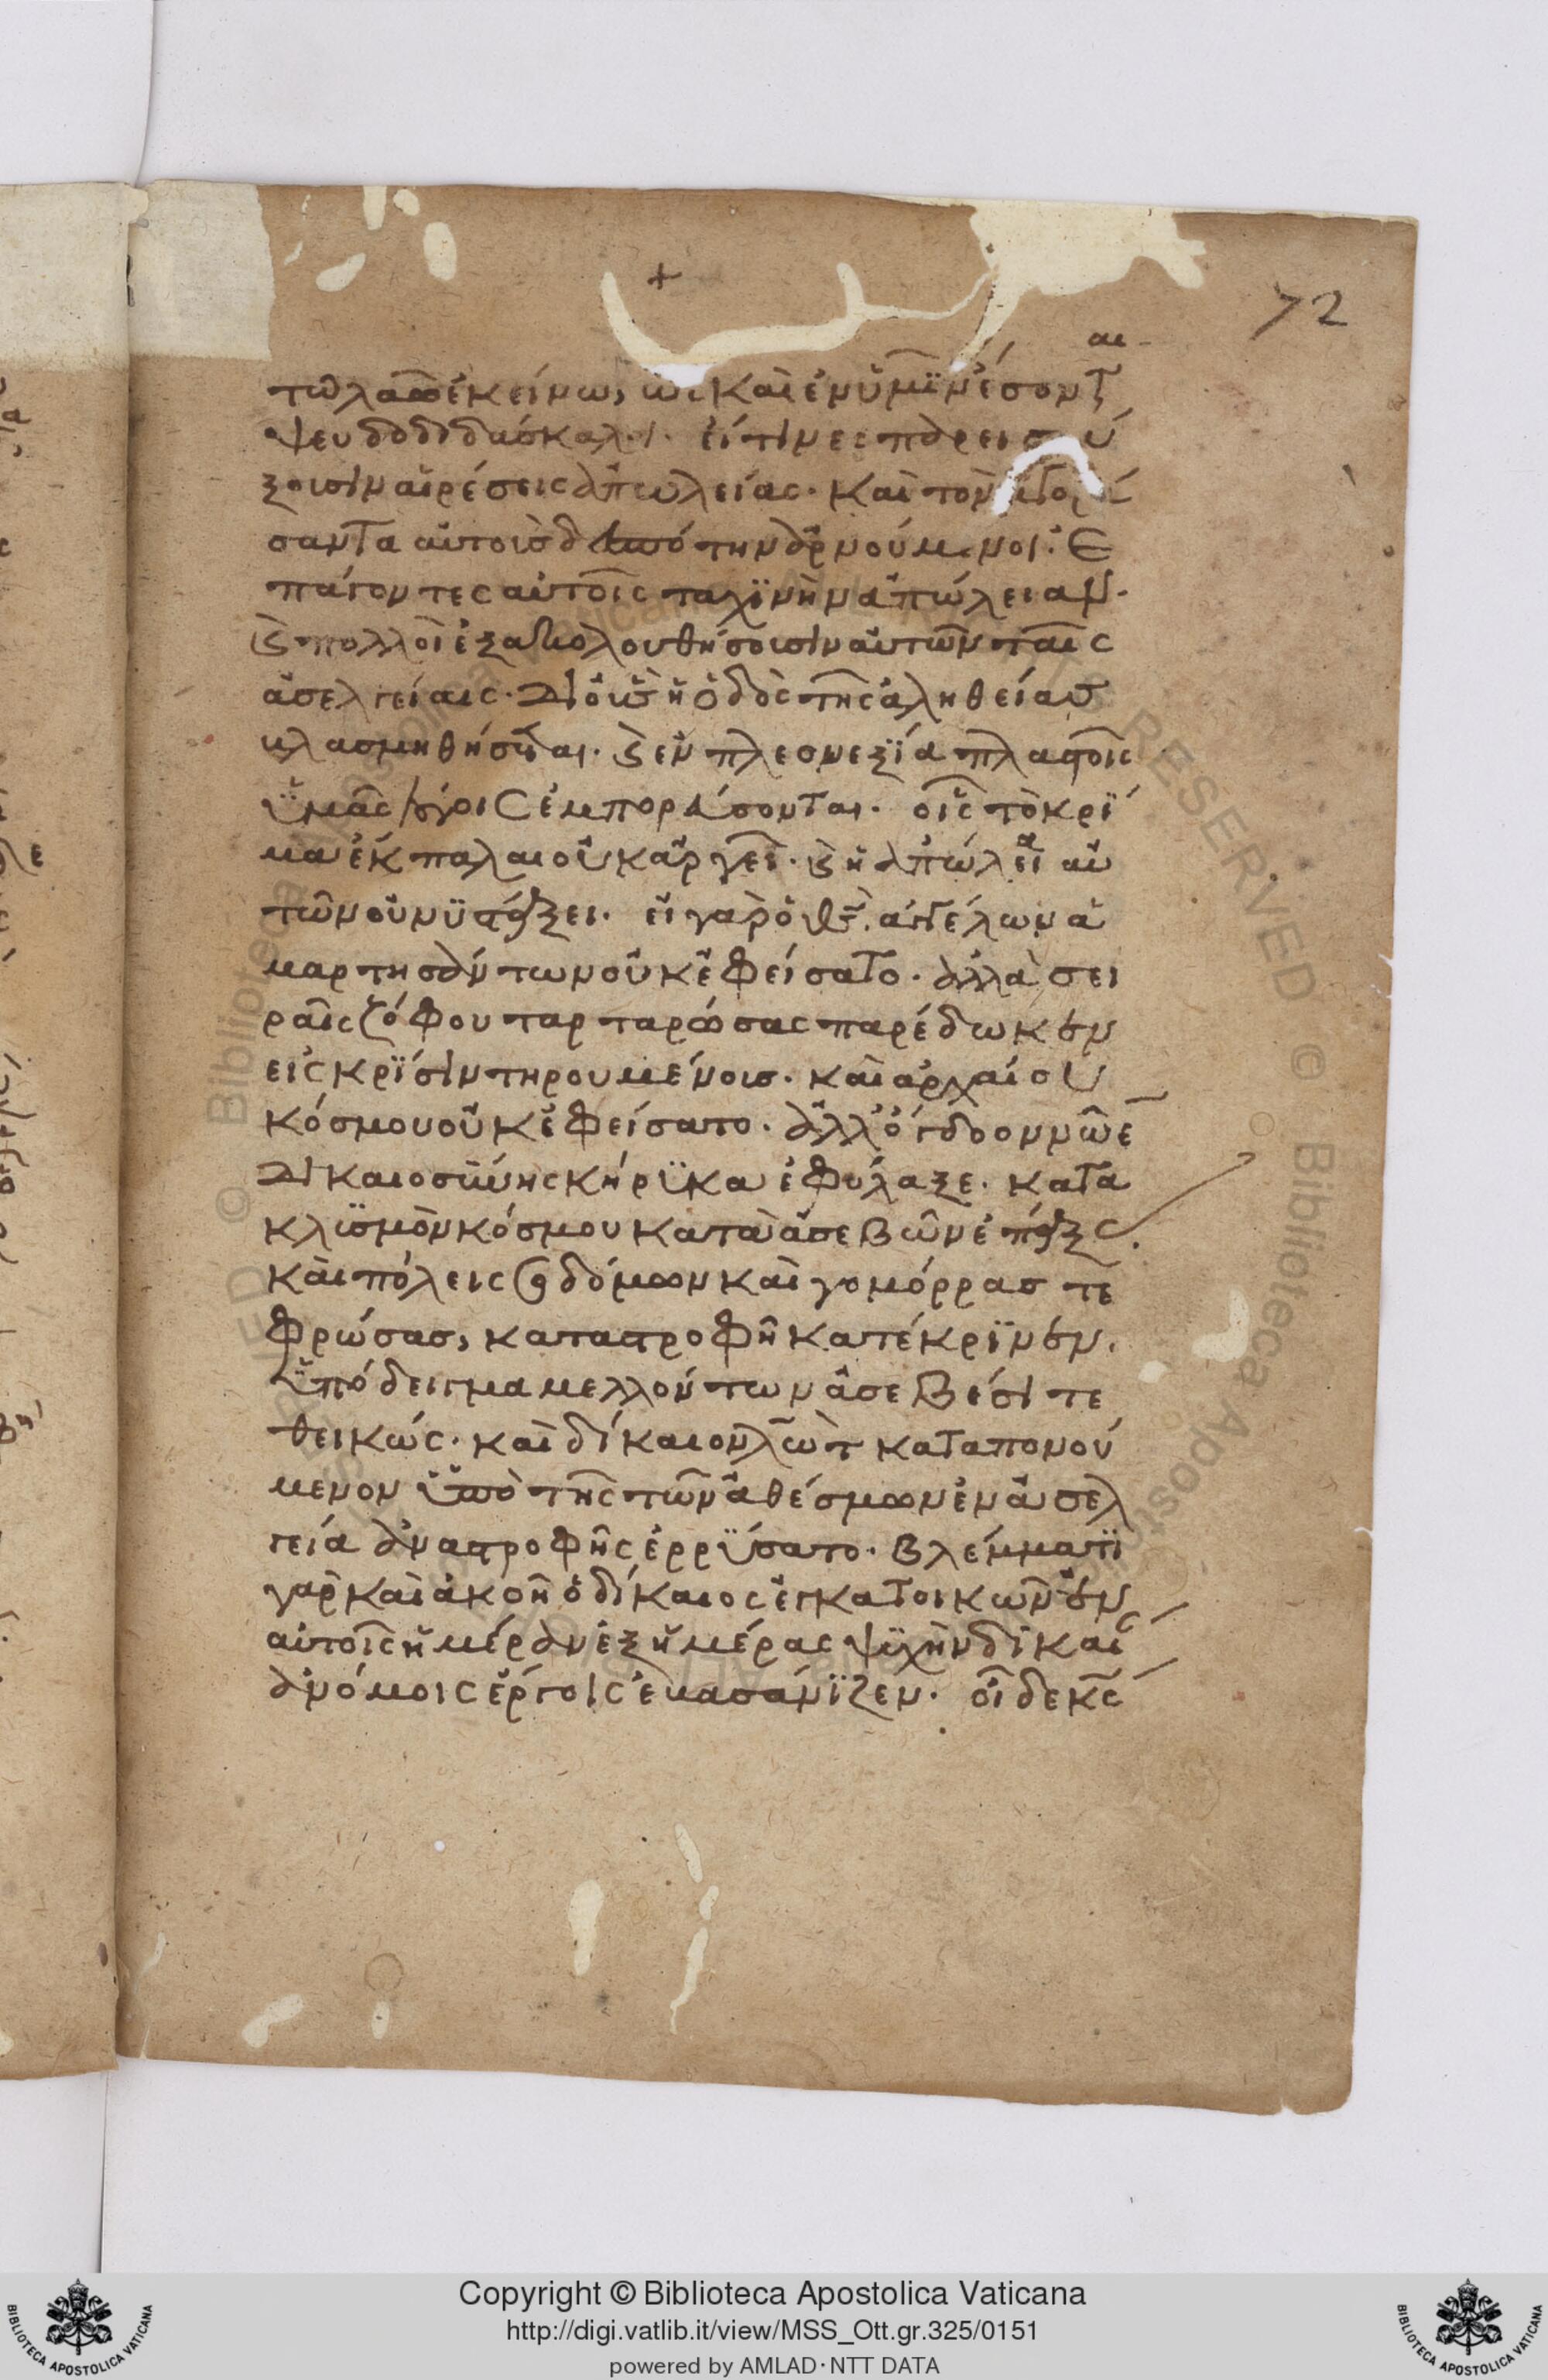 +
72
τῶ λαῶ ἐκείνω, ὡς καὶ ἐν ὑμῖν ἔσονται
ψευδοδιδάσκαλοι. οἵτινες παρεισά
ξουσιν αἱρέσεις ἀπωλείας. καὶ τὸν ἀγορά
σαντα αὐτοὺς δεσπότην ἀρνούμενοι. ἐ
πάγοντες αὐτοῖς ταχϊνὴν ἀπώλειαν.
καὶ πολλοὶ ἐξακολουθήσουσιν αὐτῶν ταῖς
ἀσελγείαις. δι οὓς ἡ ὁδὸς τῆς ἀληθείας
βλασφημηθήσεται. καὶ ἐν πλεονεξΐα πλαστοῖς
ὑμᾶς λόγοις ἐμπορεύσονται. οἷς τὸ κρΐ
μα ἔκπαλαι οὐκ ἀργεῖ. καὶ ἡ ἀπώλεια αὐ
τῶν οὐ νϋστάξει. εἰ γὰρ ὁ θς ἀγγέλων ἁ
μαρτησάντων οὐκ ἐφείσατο. ἀλλὰ σει
ραῖς ζόφου ταρταρώσας παρέδωκεν
εἰς κρΐσιν τηρουμένους. καὶ ἀρχαίου
κόσμου οὐκ ἐφείσατο. ἀλλ ὄγδοον νῶε
δικαιοσύνης κήρϋκα ἐφύλαξε. κατα
κλϋσμὸν κόσμου κατὰ ἀσεβῶν ἐπάξας.
καὶ πόλεις σοδόμων καὶ γομόρρας τε
φρώσας, καταστροφῆ κατέκρϊνεν.
ὑπόδειγμα μελλόντων ἀσεβέσι τε
θεικώς. καὶ δίκαιον λὼτ καταπονού
μενον ὑπὸ τῆς τῶν ἀθέσμων ἐν ἀσελ
γεία ἀναστροφῆς ἐρρύσατο. βλέμματι
γὰρ καὶ ἀκοῆ ὁ δίκαιος ἐγκατοικῶν ἐν
αὐτοῖς ἡμέραν ἐξ ἡμέρας ψϋχὴν δικαί
ἀνόμοις ἔργοις ἐβασάνϊζεν.
Copyright © Biblioteca Apostolica Vaticana
http://digi.vatlib.it/view/MSS_Ott.gr.325/0151
powered by AMLAD·NTT DATA